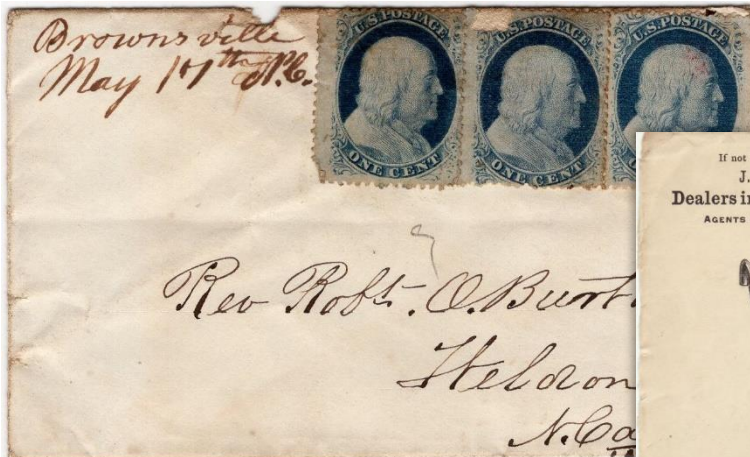 Brownsville
May 17th N.C.
U.S. POSTAGE
ONE CENT
U.S. POSTAGE
ONE CENT
U.S. POSTAGE
If not
J.
Dealers in
AGENTS
Rev Robt. O. Burt
Weldon
N. Ca